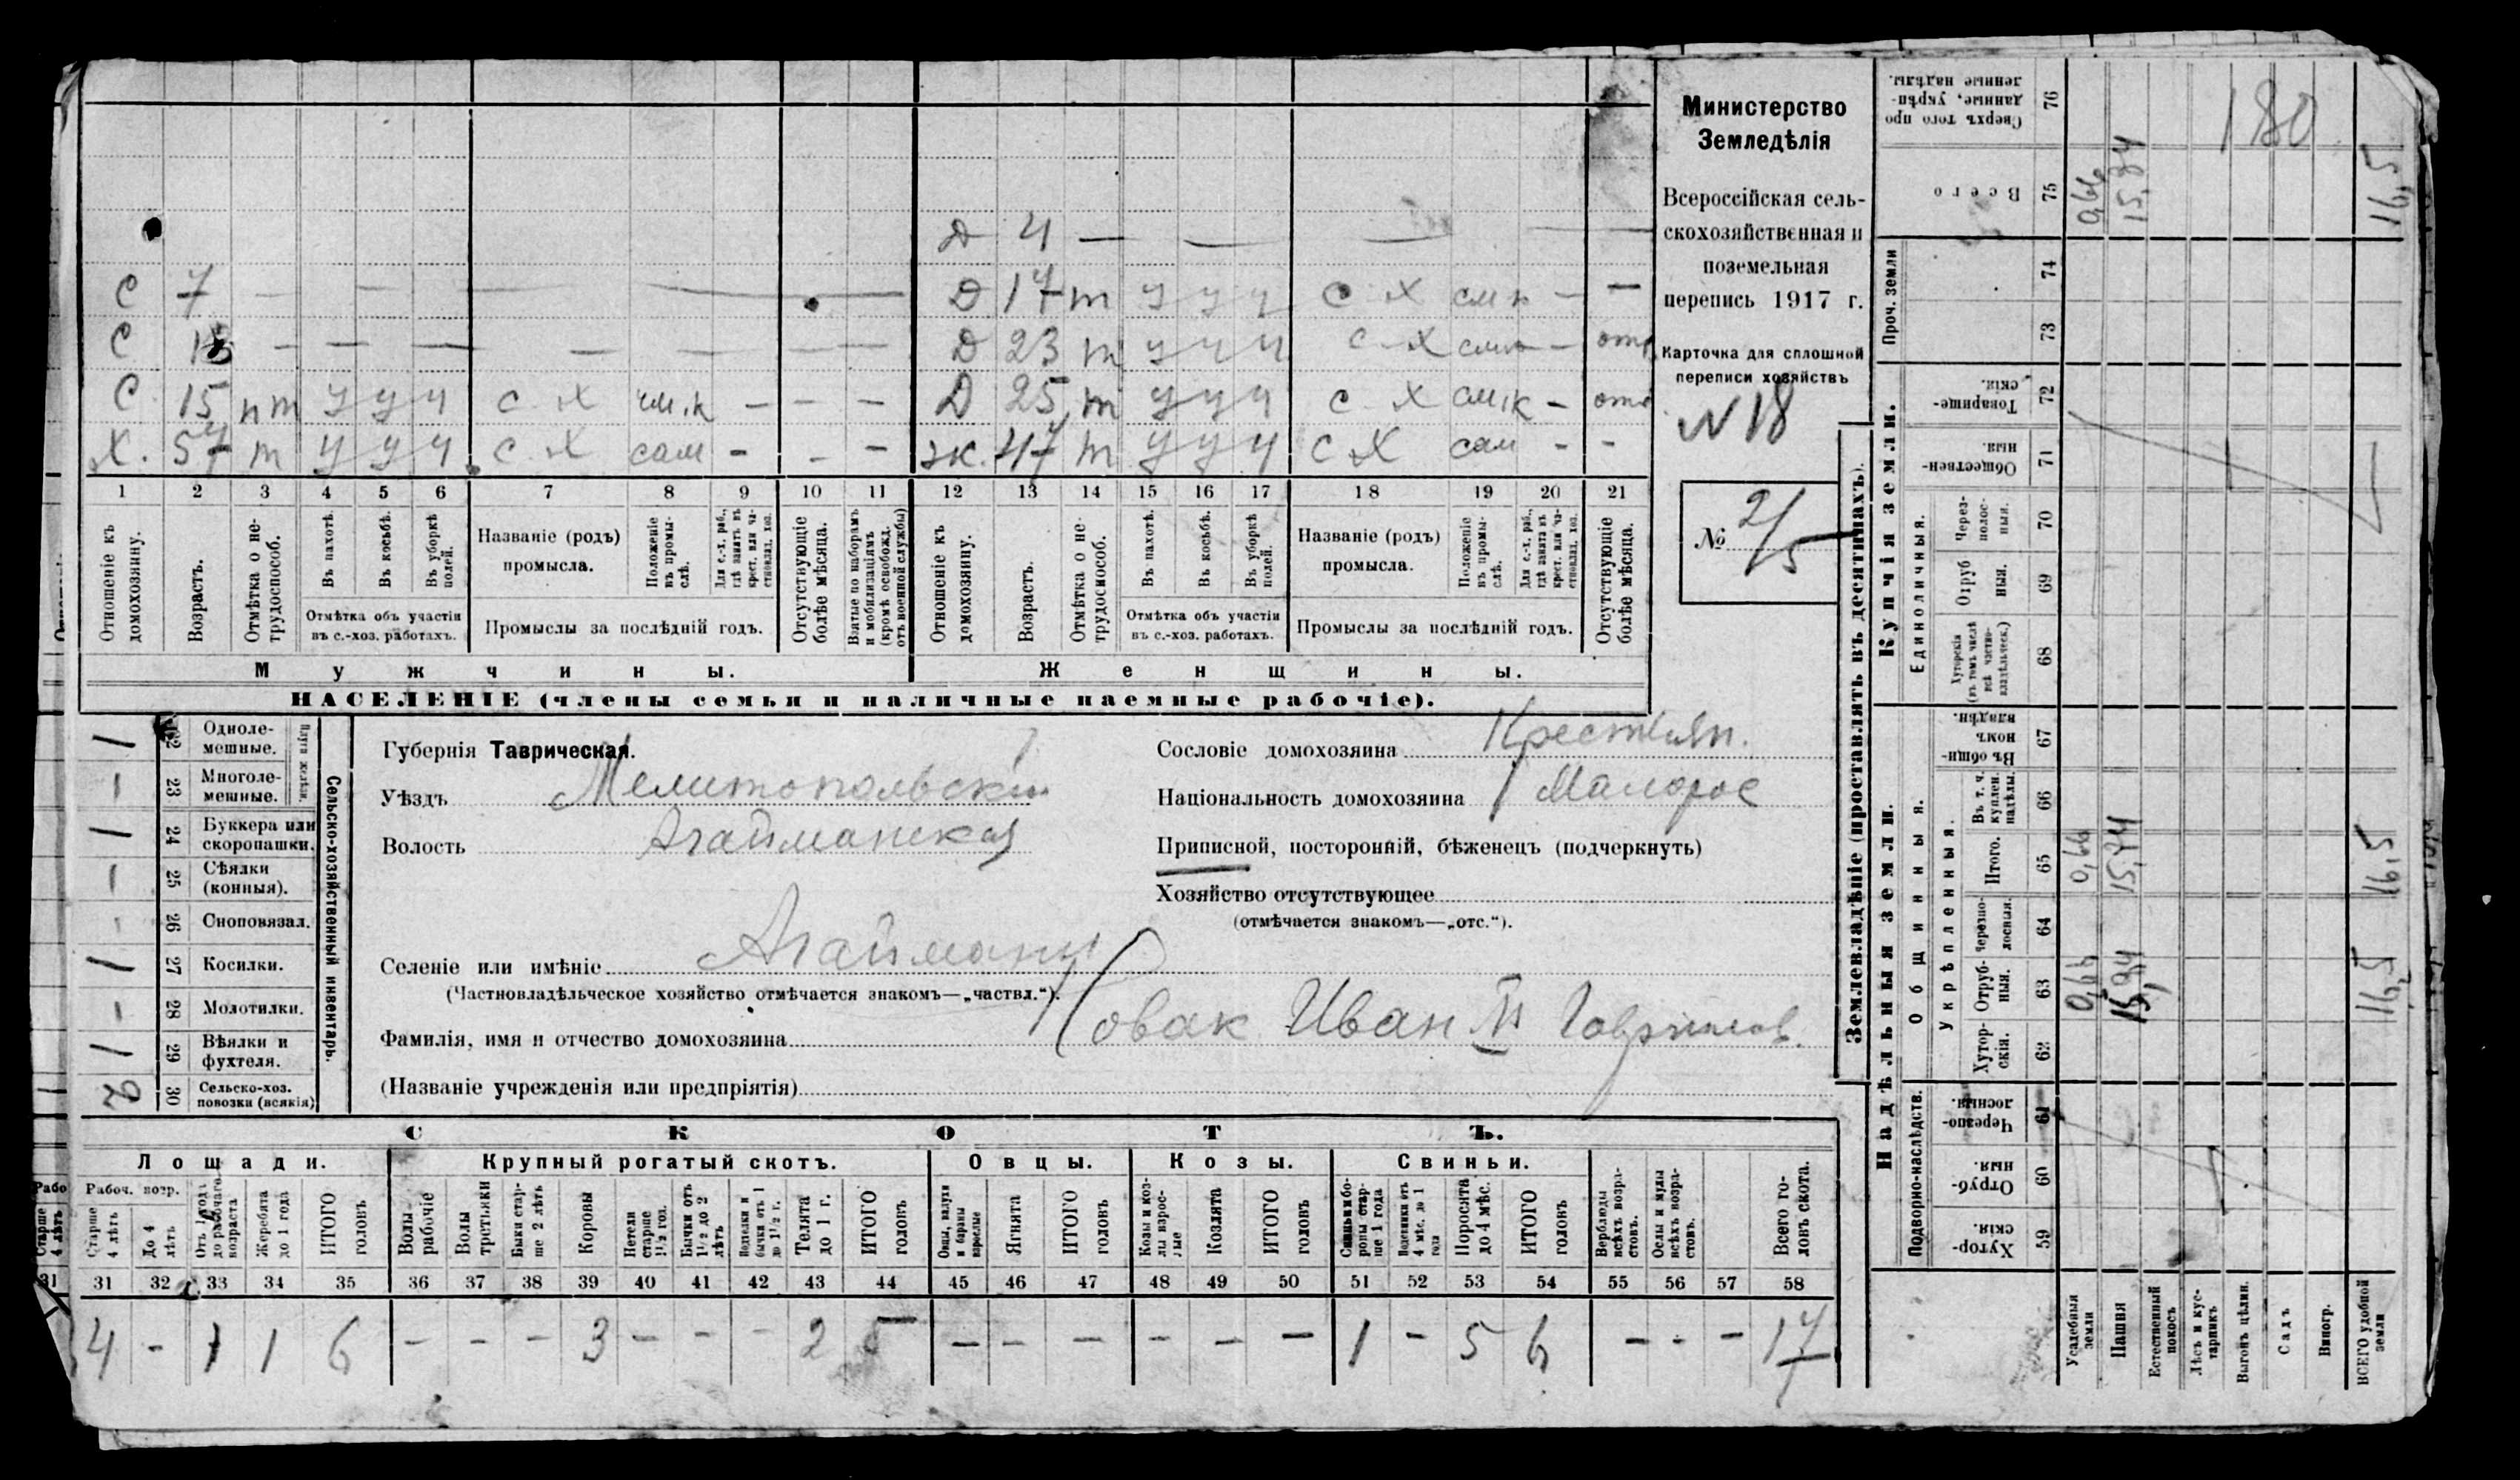 Министерство
Земледѣлія
Всероссійская сель-
скохозяйственная и
поземельная
перепись 1917 г.
Карточка для сплошной
переписи хозяйствъ
N 18
№ 2/5
Д 4 — — — —
С 7 — — — — — — Д 17 т у у у с х смк — —
С 13 — — — — — — — Д 23 т у у у с х смк — отс
С 15 пт у у у с х см.к — — — Д 25 т у у у с х см.к — отс
Х. 57 т у у у с х сам — — — ж. 47 т у у у с х сам — —
1 2 3 4 5 6 7 8 9 10 11 12 13 14 15 16 17 18 19 20 21
Отношеніе къ домохозяину.
Возрастъ.
Отмѣтка о не-трудоспособ.
Въ пахотѣ.
Въ косьбѣ.
Въ уборкѣ полей.
Отмѣтка объ участіи
въ с.-хоз. работахъ.
Названіе (родъ)
промысла.
Положеніе въ промы-слѣ.
Для с.-х. раб., гдѣ занятъ въ крест. или ча-стновлад. хоз.
Промыслы за послѣдній годъ.
Отсутствующіе болѣе мѣсяца.
Взятые по наборамъ и мобилизаціямъ (кромѣ освобожд. отъ военной службы)
Отношеніе къ домохозяину.
Возрастъ.
Отмѣтка о не-трудоспособ.
Въ пахотѣ.
Въ косьбѣ.
Въ уборкѣ полей.
Отмѣтка объ участіи
въ с.-хоз. работахъ.
Названіе (родъ)
промысла.
Положеніе въ промы-слѣ.
Для с.-х. раб., гдѣ занята въ крест. или ча-стновлад. хоз.
Промыслы за послѣдній годъ.
Отсутствующіе болѣе мѣсяца.
Мужчины. Женщины.
НАСЕЛЕНІЕ (члены семьи и наличные наемные рабочіе).
Сельско-хозяйственный инвентарь.
Плуги желѣзн.
1 22 Одноле-мешные.
— 23 Многоле-мешные.
1 24 Буккера или скоропашки.
— 25 Сѣялки (конныя).
- 26 Сноповязал.
1 27 Косилки.
— 28 Молотилки.
1 29 Вѣялки и фухтеля.
2 30 Сельско-хоз. повозки (всякія)
Губернія Таврическая.
Уѣздъ Мелитопольскій
Волость Агайманская
Селеніе или имѣніе Агайманы
(Частновладѣльческое хозяйство отмѣчается знакомъ—„частвл.“).
Фамилія, имя и отчество домохозяина Новак Иван Гаврилов.
(Названіе учрежденія или предпріятія)
Сословіе домохозяина Крестьян.
Національность домохозяина Малорос
Приписной, посторонній, бѣженецъ (подчеркнуть)
Хозяйство отсутствующее
(отмѣчается знакомъ—„отс.“).
СКОТЪ.
Лошади. Крупный рогатый скотъ. Овцы. Козы. Свиньи.
Рабоч. возр.
Старше 4 лѣтъ
До 4 лѣтъ
Отъ 1 года до рабочаго возраста
Жеребята до 1 года
ИТОГО головъ
Волы рабочіе
Волы третьяки
Быки стар-ше 2 лѣтъ
Коровы
Нетели старше 1½ год.
Бычки отъ 1½ до 2 лѣтъ
Телята до 1 г.
ИТОГО головъ
Овцы, валухи и бараны взрослые
Ягнята
ИТОГО головъ
Козы и коз-лы взрос-лые
Козлята
ИТОГО головъ
Свиньи и бо-ровы стар-ше 1 года
Поросята до 4 мѣс.
ИТОГО головъ
Верблюды всѣхъ возра-стовъ.
Ослы и мулы всѣхъ возра-стовъ.
Всего го-ловъ скота.
31 32 33 34 35 36 37 38 39 40 41 42 43 44 45 46 47 48 49 50 51 52 53 54 55 56 57 58
4 - 1 1 6 - - - 3 - - - 2 5 - - - - - - 1 - 5 6 - - - 17
Рабо
Старше 4 лѣтъ
31
Землевладѣніе (проставлять въ десятинахъ).
Купчія земли.
Надѣльныя земли.
Проч. земли
Единоличныя.
Общинныя.
Укрѣпленныя.
Подворно-наслѣдств.
Сверхъ того про данные, укрѣп-ленные надѣлы. 76
Всего 75
74
73
Товарище-скія. 72
Обществен-ныя 71
Через-полос-ныя. 70
Отруб ныя. 69
Хуторскія (въ томъ числѣ всѣ частно-владѣльческ.) 68
Въ общи-номъ владѣн. 67
Въ т. ч. куплен. надѣлы. 66
Итого. 65
Черезпо-лосныя. 64
Отруб-ныя. 63
Хутор-скія. 62
Черезпо-лосныя. 61
Отруб-ныя. 60
Хутор-скія. 59
Усадебныя земли
Пашня
Естественный покосъ
Лѣсъ и кус-тарникъ
Выгонъ цѣлин.
Садъ
Виногр.
ВСЕГО удобной земли
180
0,66 15,84 16,5
0,66 15,84 16,5
0,66 15,84 16,5